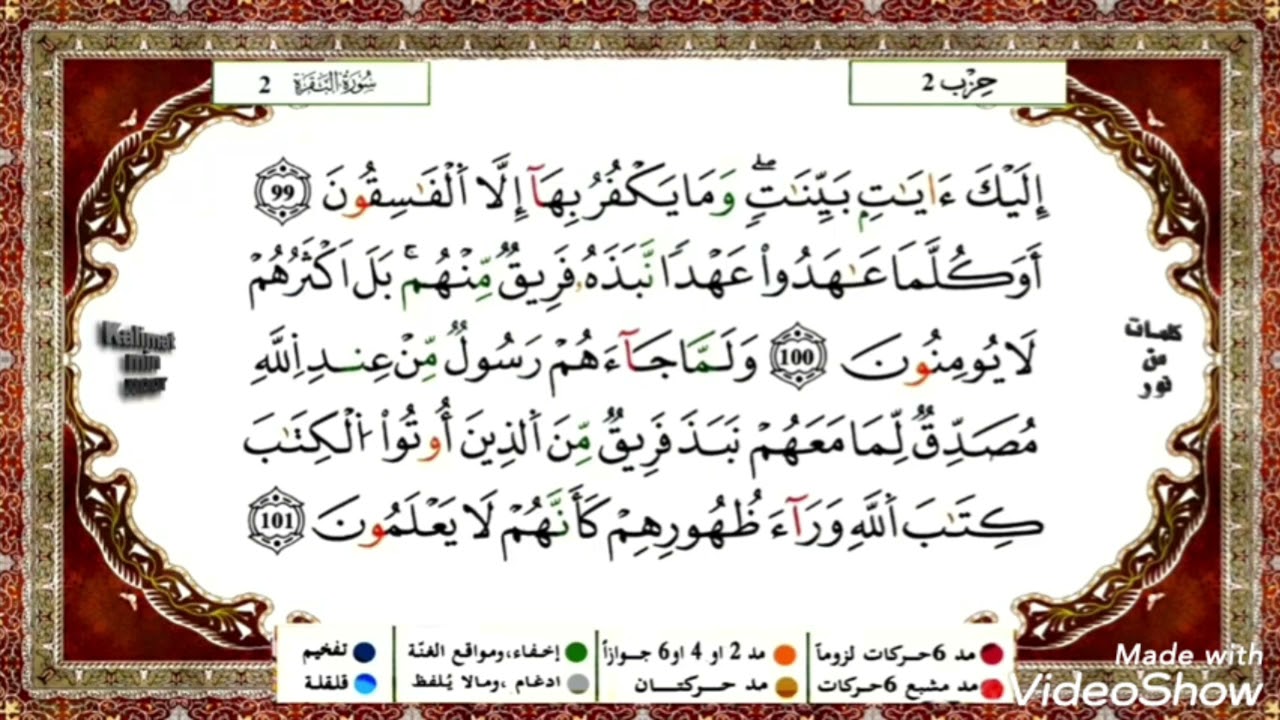 حِزْب 2
سُورَةُ الْبَقَرَة 2
إِلَيْكَ ءَايَٰتِۭ بَيِّنَٰتٖۖ وَمَا يَكْفُرُ بِهَآ إِلَّا اَ۬لْفَٰسِقُونَ 99
أَوَكُلَّمَا عَٰهَدُواْ عَهْداٗ نَّبَذَهُۥ فَرِيقٞ مِّنْهُمۚ بَلَ اَكْثَرُهُمْ
لَا يُومِنُونَ 100 وَلَمَّا جَآءَهُمْ رَسُولٞ مِّنْ عِندِ اِ۬للَّهِ
مُصَدِّقٞ لِّمَا مَعَهُمْ نَبَذَ فَرِيقٞ مِّنَ اَ۬لذِينَ أُوتُواْ اُ۬لْكِتَٰبَ
كِتَٰبَ اَ۬للَّهِ وَرَآءَ ظُهُورِهِمْ كَأَنَّهُمْ لَا يَعْلَمُونَ 101
كلمات
من
نور
Kalimat
min
noor
مد 6 حركات لزوماً مد 2 او 4 او 6 جوازاً إخفاء، ومواقع الغنّة تفخيم
مد مشبع 6 حركات مد حركتان ادغام، ومالا يُلفظ قلقلة
Made with
VideoShow